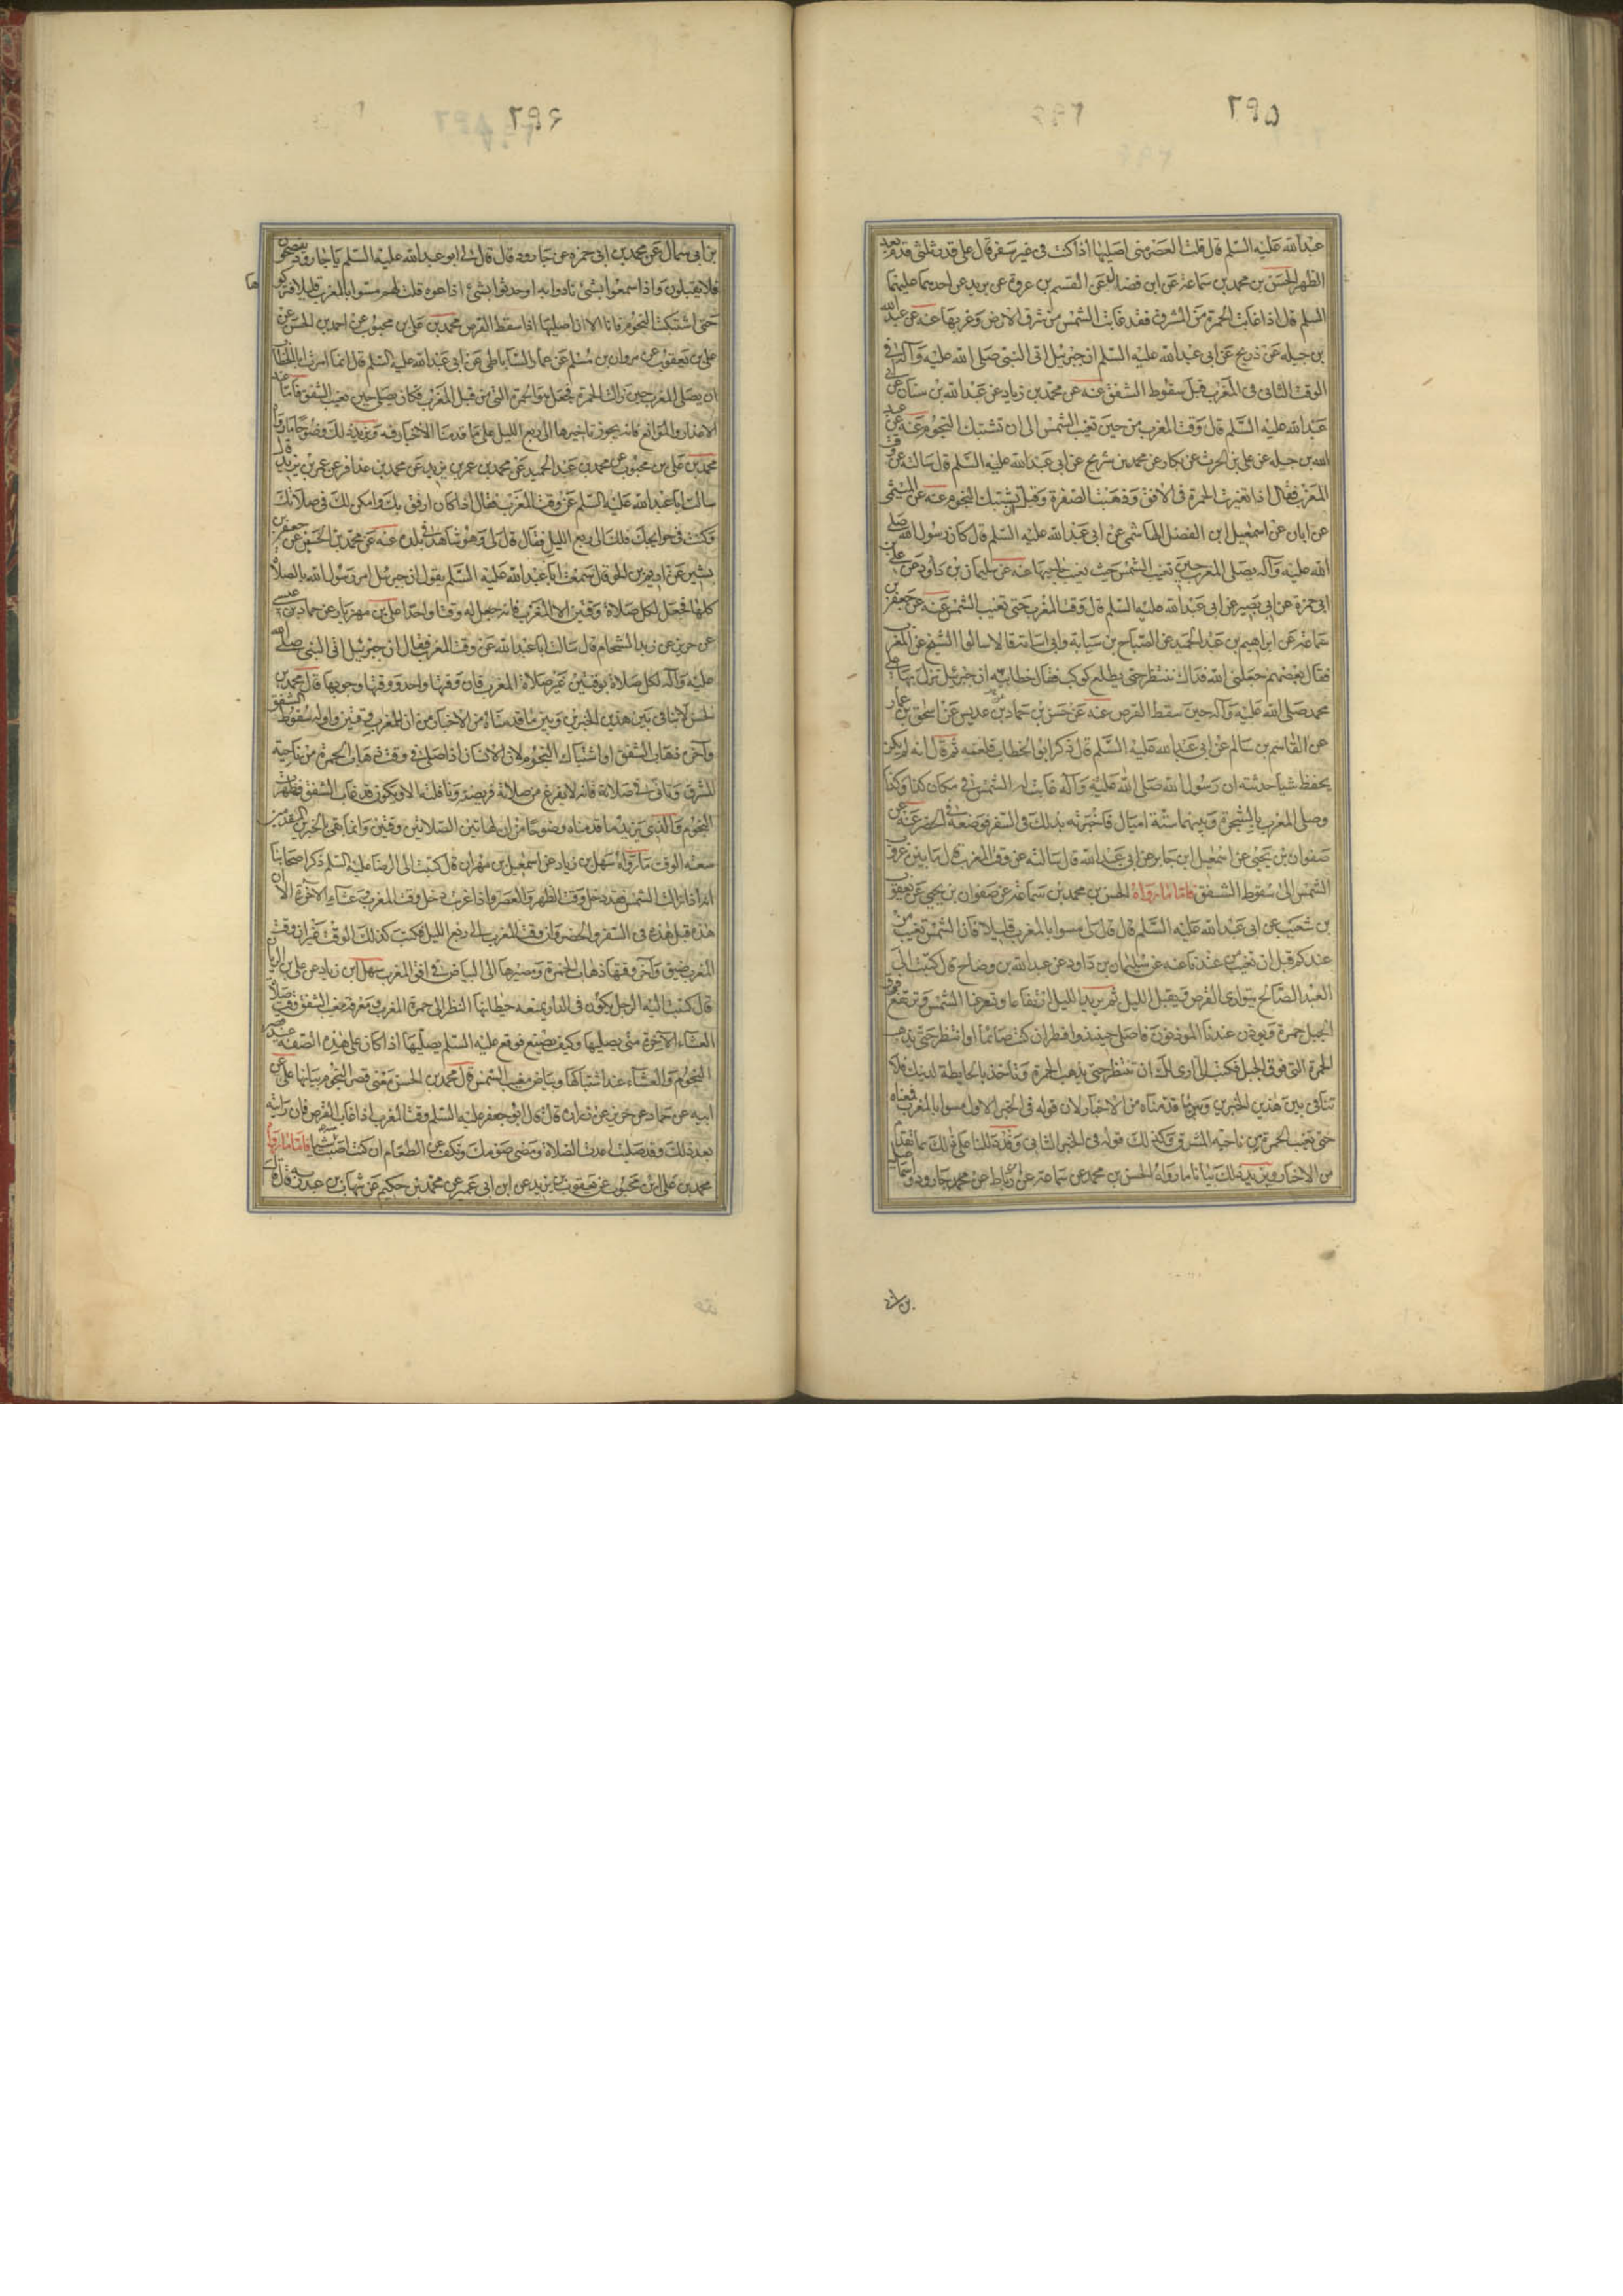 ٢٩٥
عبدالله عليه السلم قال قلت العصر متى اصليها اذا كنت فى غير سفر قال على قدر ثلثى قدم بعد
الظهر الحسن بن محمد بن سماعة عن ابن فضال عن القسم بن عروة عن بريد عن احدهما عليهما
السلم قال اذا غابت الحمرة من المشرق فقد غابت الشمس من شرق الارض وغربها عنه عن عبدالله
بن جبله عن ذريح عن ابى عبدالله عليه السلم ان جبرئيل اتى النبى صلى الله عليه وآله فى
الوقت الثانى فى المغرب قبل سقوط الشفق عنه عن محمد بن زياد عن عبدالله بن سنان عن ابى
عبدالله عليه السلم قال وقت المغرب من حين تغيب الشمس الى ان تشتبك النجوم عنه عن عبد
الله بن جبله عن على بن الحرث عن بكار عن محمد بن شريح عن ابى عبدالله عليه السلم قال سالته عن وقت
المغرب فقال اذا تغيرت الحمرة فى الافق وذهبت الصفرة وقبل ان تشتبك النجوم عنه عن الميثمى
عن ابان عن اسمعيل ابن الفضل الهاشمى عن ابى عبدالله عليه السلم قال كان رسول الله صلى
الله عليه وآله يصلى المغرب حين تغيب الشمس حيث يغيب حاجبها عنه عن سليمان بن داود عن على بن
ابى حمزة عن ابى بصير عن ابى عبدالله عليه السلم قال وقت المغرب حتى تغيب الشمس عنه عن جعفر بن
سماعه عن ابراهيم بن عبدالحميد عن الصباح بن سيابة وابى اسامة قالا سالوا الشيخ عن المغرب
فقال بعضهم جعلنى الله فداك ننتظر حتى يطلع كوكب فقال خطابية ان جبرئيل نزل بها على
محمد صلى الله عليه وآله حين سقط القرص عنه عن حسن بن حماد بن عديس عن اسحق بن عمار
عن القاسم بن سالم عن ابى عبدالله عليه السلم قال ذكر ابو الخطاب فلعنه ثم قال انه لم يكن
يحفظ شيا حدثته ان رسول الله صلى الله عليه وآله غابت له الشمس فى مكان كذا وكذا
وصلى المغرب بالشجرة وبينهما ستة اميال فاخبرته بذلك فى السفر فوضعه فى الحضر عنه عن
صفوان بن يحيى عن اسمعيل ابن جابر عن ابى عبدالله قال سالته عن وقت المغرب قال ما بين غروب
الشمس الى سقوط الشفق فاما ما رواه الحسن بن محمد بن سماعة عن صفوان بن يحيى عن يعقوب
بن شعيب عن ابى عبدالله عليه السلم قال قال لى مسوا بالمغرب قليلا فان الشمس تغيب من
عندكم قبل ان تغيب من عندنا عنه عن سليمان بن داود عن عبدالله بن وضاح قال كتبت الى
العبد الصالح يتوارى القرص ويقبل الليل ثم يزيد الليل ارتفاعا وتستر عنا الشمس وترتفع فوق
الجبل حمرة ويوذن عندنا الموذنون فاصلى حينئذ وافطر ان كنت صائما او انتظر حتى تذهب
الحمرة التى فوق الجبل فكتب الى ارى لك ان تنتظر حتى يذهب الحمرة وتاخذ بالحايطة لدينك فلا
تنافى بين هذين الخبرين وبين ما قدمناه من الاخبار لان قوله فى الخبر الاول مسوا بالمغرب معناه
حتى تغيب الحمرة من ناحية المشرق وكذلك قوله فى الخبر الثانى وقد دللنا على ذلك بما تقدم
من الاخبار ويزيد ذلك بيانا ما رواه الحسن بن محمد عن سماعة عن ابن رباط عن محمد جارود واسمعيل
٢٩٦
بن ابى سمال عن محمد بن ابى حمزه عن جارود قال قال لى ابو عبدالله عليه السلم يا جارود ينصحون
فلا يقبلون واذا سمعوا بشئ نادوا به او حدثوا بشئ اذاعوه قلت لهم مسوا بالمغرب قليلا فتركوها
حتى اشتبكت النجوم فانا الان اصليها اذا سقط القرص محمد بن على بن محبوب عن احمد بن الحسن عن
على بن يعقوب عن مروان بن مسلم عن عمار الساباطى عن ابى عبدالله عليه السلم قال انما امرت ابا الخطاب
ان يصلى المغرب حين زالت الحمرة فجعل هو الحمرة التى من قبل المغرب فكان يصلى حين يغيب الشفق فاما عند
الاعذار والموانع فانه يجوز تاخيرها الى ربع الليل على ما قدمنا الاخبار فيه ويزيد ذلك وضوحا ما رواه
محمد بن على بن محبوب عن محمد بن عبدالحميد عن محمد بن عمر بن يزيد عن محمد بن عذافر عن عمر بن يزيد قال
سالت ابا عبدالله عليه السلم عن وقت المغرب فقال اذا كان ارفق بك وامكن لك فى صلاتك
وكنت فى حوايجك فلك الى ربع الليل فقال قال لى وهو شاهد فى بلده عنه عن محمد بن الحسين عن جعفر بن
بشير عن اديم بن الحر قال سمعت ابا عبدالله عليه السلم يقول ان جبرئيل امر رسول الله بالصلاة
كلها فجعل لكل صلاة وقتين الا المغرب فانه جعل له وقتا واحدا على بن مهزيار عن حماد بن عيسى
عن حريز عن زيد الشحام قال سالت ابا عبدالله عن وقت المغرب فقال ان جبرئيل اتى النبى صلى الله
عليه وآله لكل صلاة بوقتين غير صلاة المغرب فان وقتها واحد ووقتها وجوبها قال محمد بن
الحسن لا تنافى بين هذين الخبرين وبين ما قدمناه من الاخبار من ان للمغرب وقتين واوله سقوط الشفق
وآخره ذهاب الشفق او اشتباك النجوم لان الانسان اذا صلى فى وقت ذهاب الحمرة من ناحية
المشرق وتانى فى صلاته فانه لا يفرغ من صلاته فريضته ونافلته الا ويكون قد غاب الشفق فظهرت
النجوم والذى يزيد ما قدمناه وضوحا من ان لهاتين الصلاتين وقتين وانما نفى بالخبرين المتقدمين
سعة الوقت ما رواه سهل بن زياد عن اسمعيل بن مهران قال كتبت الى الرضا عليه السلم ذكر اصحابنا
انه اذا زالت الشمس فقد دخل وقت الظهر والعصر واذا غربت دخل وقت المغرب وعشاء الآخرة الا ان
هذه قبل هذه فى السفر والحضر وان وقت المغرب الى ربع الليل فكتب كذلك الوقت غير ان وقت
المغرب ضيق وآخر وقتها ذهاب الحمرة ومصيرها الى البياض فى افق المغرب سهل ابن زياد عن على بن الريان
قال كتبت اليه الرجل يكون فى الدار يمنعه حيطانها النظر الى حمرة المغرب ومعرفة مغيب الشفق ووقت صلاة
العشاء الآخرة متى يصليها وكيف يصنع فوقع عليه السلم يصليها اذا كان على هذه الصفة عند قصر
النجوم والعشاء عند اشتباكها وبياض مغيب الشمس قال محمد بن الحسن معنى قصر النجوم بيانها على عن
ابيه عن حماد عن حريز عن زرارة قال قال ابو جعفر عليه السلم وقت المغرب اذا غاب القرص فان رايته
بعد ذلك وقد صليت اعدت الصلاة ومضى صومك وتكف عن الطعام ان كنت اصبت منه شيا فاما ما رواه
محمد بن على ابن محبوب عن يعقوب بن يزيد عن ابن ابى عمير عن محمد بن حكيم عن شهاب بن عبد ربه قال قال